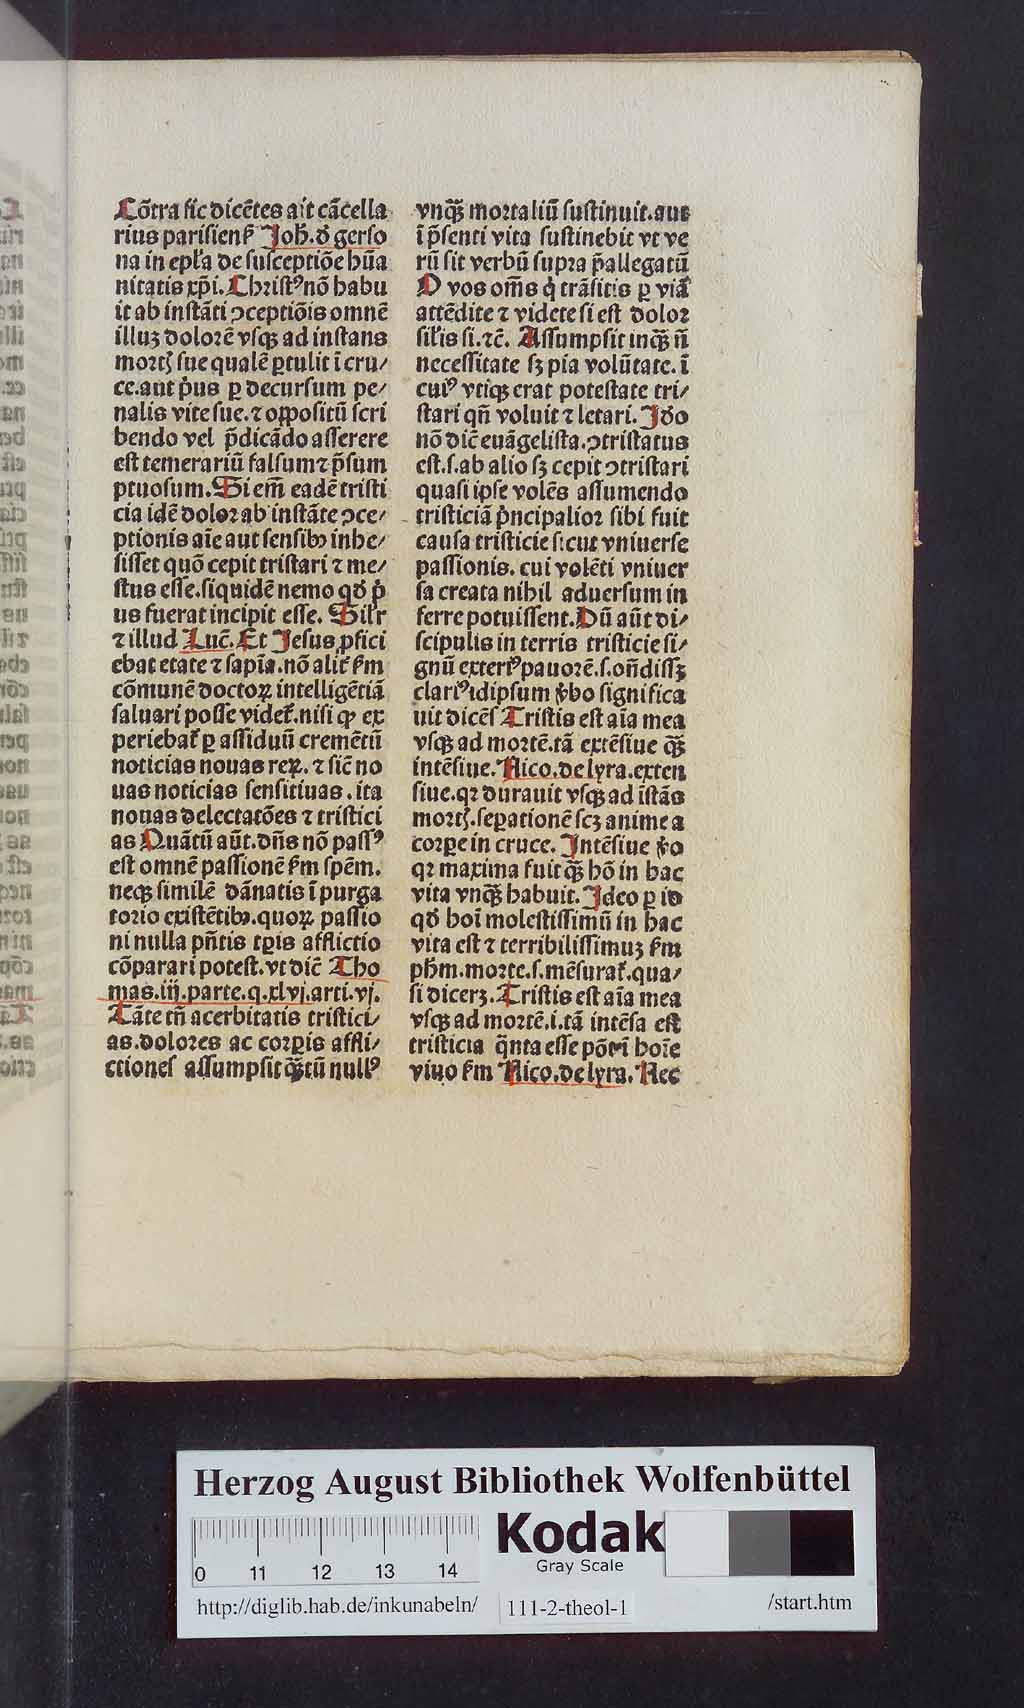 Cōtra sic dicētes ait cācella
rius parisienẜ Joh̄. dͤ gerso
na in epl̄a de susceptiōe hūa
nitatis xp̄i. Christꝰ nō habu
it ab instāti ꝯceptiōis omnē
illuz dolorē vsqꝫ ad instans
mortꝭ sue qualē ꝑtulit ī cru/
ce. aut pͥus ꝑ decursum pe/
nalis vite sue. ⁊ oꝓpositū scri
bendo vel p̄dicādo asserere
est temerariū falsum ⁊ p̄sum
ptuosum. Si em̄ eadē tristi
cia idē dolor ab instāte ꝯce/
ptionis aīe aut sensibꝫ inhe/
sisset quō cepit tristari ⁊ me/
stus esse. siquidē nemo qd̓ pͥ
us fuerat incipit esse. Sil̓r
⁊ illud Luc̄. Et Jesus ꝓfici
ebat etate ⁊ sap̄ia. nō alit̓ ẜm
cōmunē doctoꝝ intelligētiā
saluari posse videt̓. nisi ꝙ ex
periebat̓ ꝑ assiduū cremētū
noticias nouas reꝝ. ⁊ sic̄ no
uas noticias sensitiuas. ita
nouas delectatōes ⁊ tristici
as Quātū aūt. dn̄s nō passꝰ
est omnē passionē ẜm spēm.
neqꝫ similē dānatis ī purga
torio existētibꝫ. quoꝝ passio
ni nulla pn̄tis tꝑis afflictio
cōparari potest. vt dic̄ Tho
mas. iij. parte. q. xlvj. arti. vj.
Tāte tn̄ acerbitatis tristici/
as. dolores ac corꝑis affli/
ctiones assumpsit qꝫ̄tū nullꝰ
vnqꝫ̄ mortaliū sustinuit. aut
ī p̄senti vita sustinebit vt ve
rū sit verbū supra p̄allegatū
O vos om̄s qͥ trāsitis ꝑ viā
attēdite ⁊ videte si est dolor
sil̓is si. ⁊c̄. Assumpsit inqꝫ̄ n̄
necessitate sꝫ pia volūtate. ī
cuiꝰ vtiqꝫ erat potestate tri/
stari qn̄ voluit ⁊ letari. Jdͦo
nō dic̄ euāgelista. ꝯtristatus
est. s. ab alio sꝫ cepit ꝯtristari
quasi ipse volēs assumendo
tristiciā pͥncipalior sibi fuit
causa tristicie sicut vniuerse
passionis. cui volēti vniuer
sa creata nihil aduersum in
ferre potuissent. Dū aūt di/
scipulis in terris tristicie si/
gnū exteriꝰ pauorē. s. on̄dissꝫ
clariꝰ idipsum ꝟbo significa
uit dicēs Tristis est aīa mea
vsqꝫ ad mortē. tā extēsiue qꝫ̄
intēsiue. Nico. de lyra. exten
siue. qꝛ durauit vsqꝫ ad īstās
mortꝭ. seꝑationē scꝫ anime a
corꝑe in cruce. Jntēsiue ꝟo
qꝛ maxima fuit qꝫ̄ hō in hac
vita vnqꝫ̄ habuit. Jdeo ꝑ id
qd̓ hoī molestissimū in hac
vita est ⁊ terribilissimuz ẜm
ph̄m. morte. s. mēsurat̓. qua/
si dicerꝫ. Tristis est aīa mea
vsqꝫ ad mortē. i. tā intēsa est
tristicia qͣnta esse pōt ī hoīe
viuo ẜm Nico. de lyra. Nec
Herzog August Bibliothek Wolfenbüttel
Kodak
Gray Scale
0 11 12 13 14
http://diglib.hab.de/inkunabeln/
111-2-theol-1
/start.htm